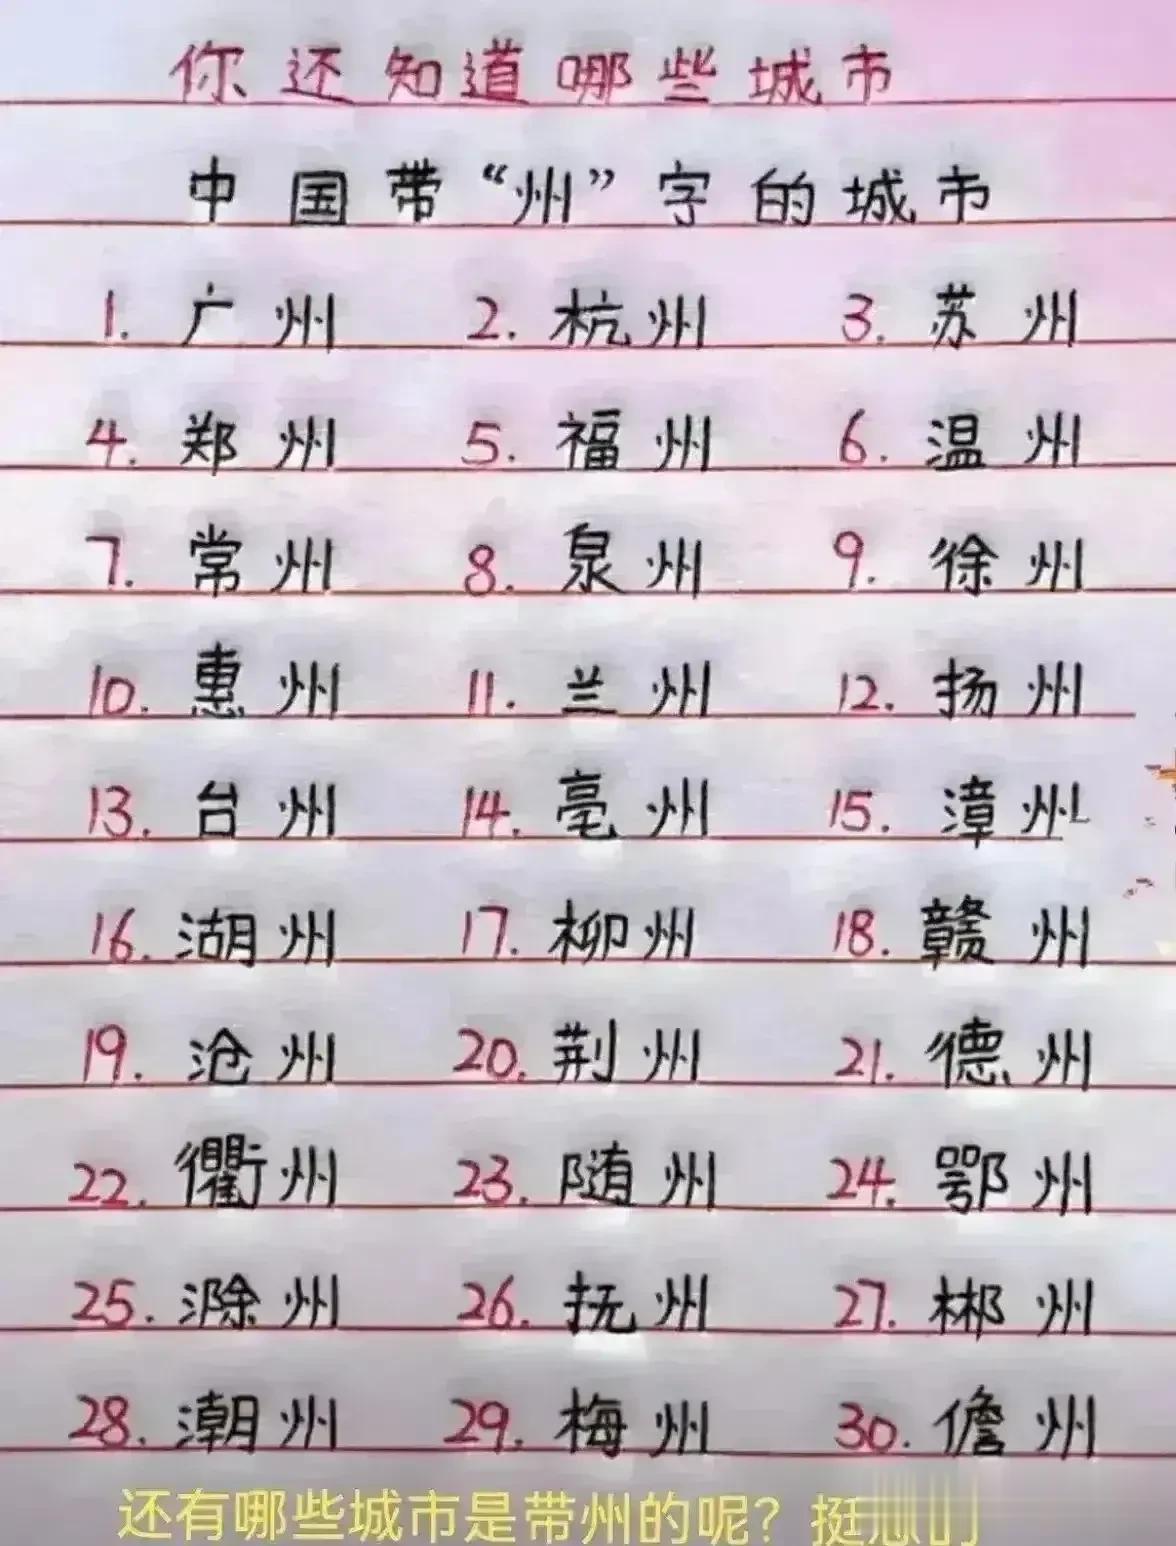 你还知道哪些城市
中国带“州”字的城市
1. 广州 2. 杭州 3. 苏州
4. 郑州 5. 福州 6. 温州
7. 常州 8. 泉州 9. 徐州
10. 惠州 11. 兰州 12. 扬州
13. 台州 14. 亳州 15. 漳州
16. 湖州 17. 柳州 18. 赣州
19. 沧州 20. 荆州 21. 德州
22. 衢州 23. 随州 24. 鄂州
25. 滁州 26. 抚州 27. 郴州
28. 潮州 29. 梅州 30. 儋州
还有哪些城市是带州的呢？挺